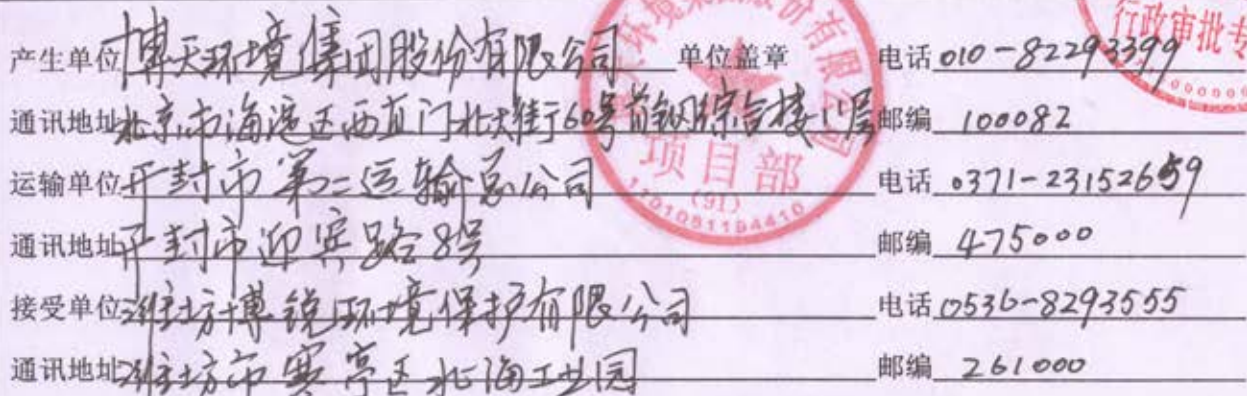 产生单位 博天环境集团股份有限公司 单位盖章 电话 010-82293399
通讯地址 北京市海淀区西直门北大街60号首钢综合楼11层 邮编 100082
运输单位 开封市第二运输总公司 电话 0371-23152659
通讯地址 开封市迎宾路8号 邮编 475000
接受单位 潍坊博锐环境保护有限公司 电话 0536-8293555
通讯地址 潍坊市寒亭区北海工业园 邮编 261000
项目部
(91)
1101081194410
行政审批专